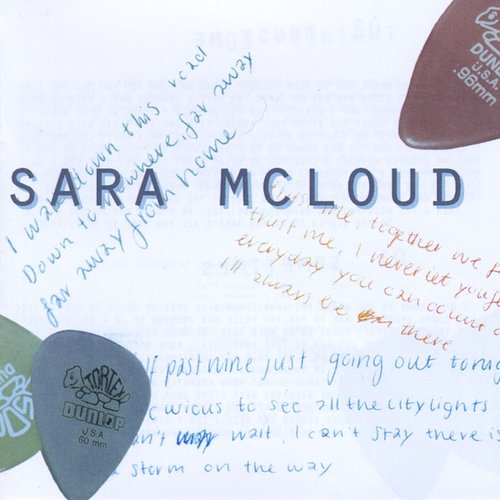 DUNLOP
U.S.A.
.96mm
I walk down this road
Down to nowhere, far away
far away from home
SARA MCLOUD
trust me together we f
trust me, I never let you f
everyday you can count o
I'll always be there
lf past nine just going out tonig
curious to see all the citylights
an't wait, I can't stay there is
a storm on the way
TORTEX
DUNLOP
USA
.60 mm